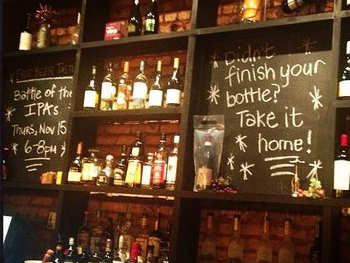 Battle of the
IPA's
Thurs, Nov 15
6-8pm
Didn't
finish your
bottle?
Take it
home!